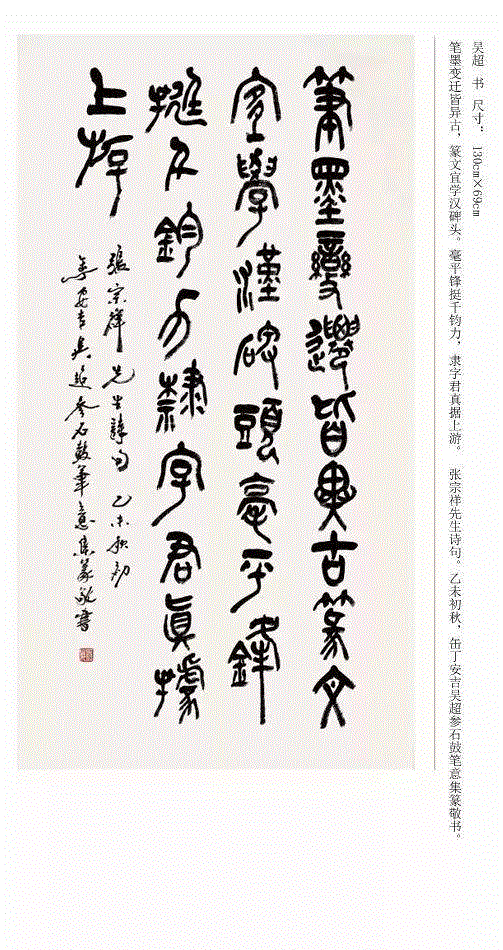 吴超 书 尺寸：130cm×69cm
笔墨变迁皆异古，篆文宜学汉碑头。毫平锋挺千钧力，隶字君真据上游。 张宗祥先生诗句。乙未初秋，缶丁安吉吴超参石鼓笔意集篆敬书。
筆墨變遷皆異古篆文
宜學漢碑頭毫平鋒
挺千鈞力隸字君眞據
上游
張宗祥先生詩句乙未秋初
安吉吳超參石鼓筆意集篆敬書